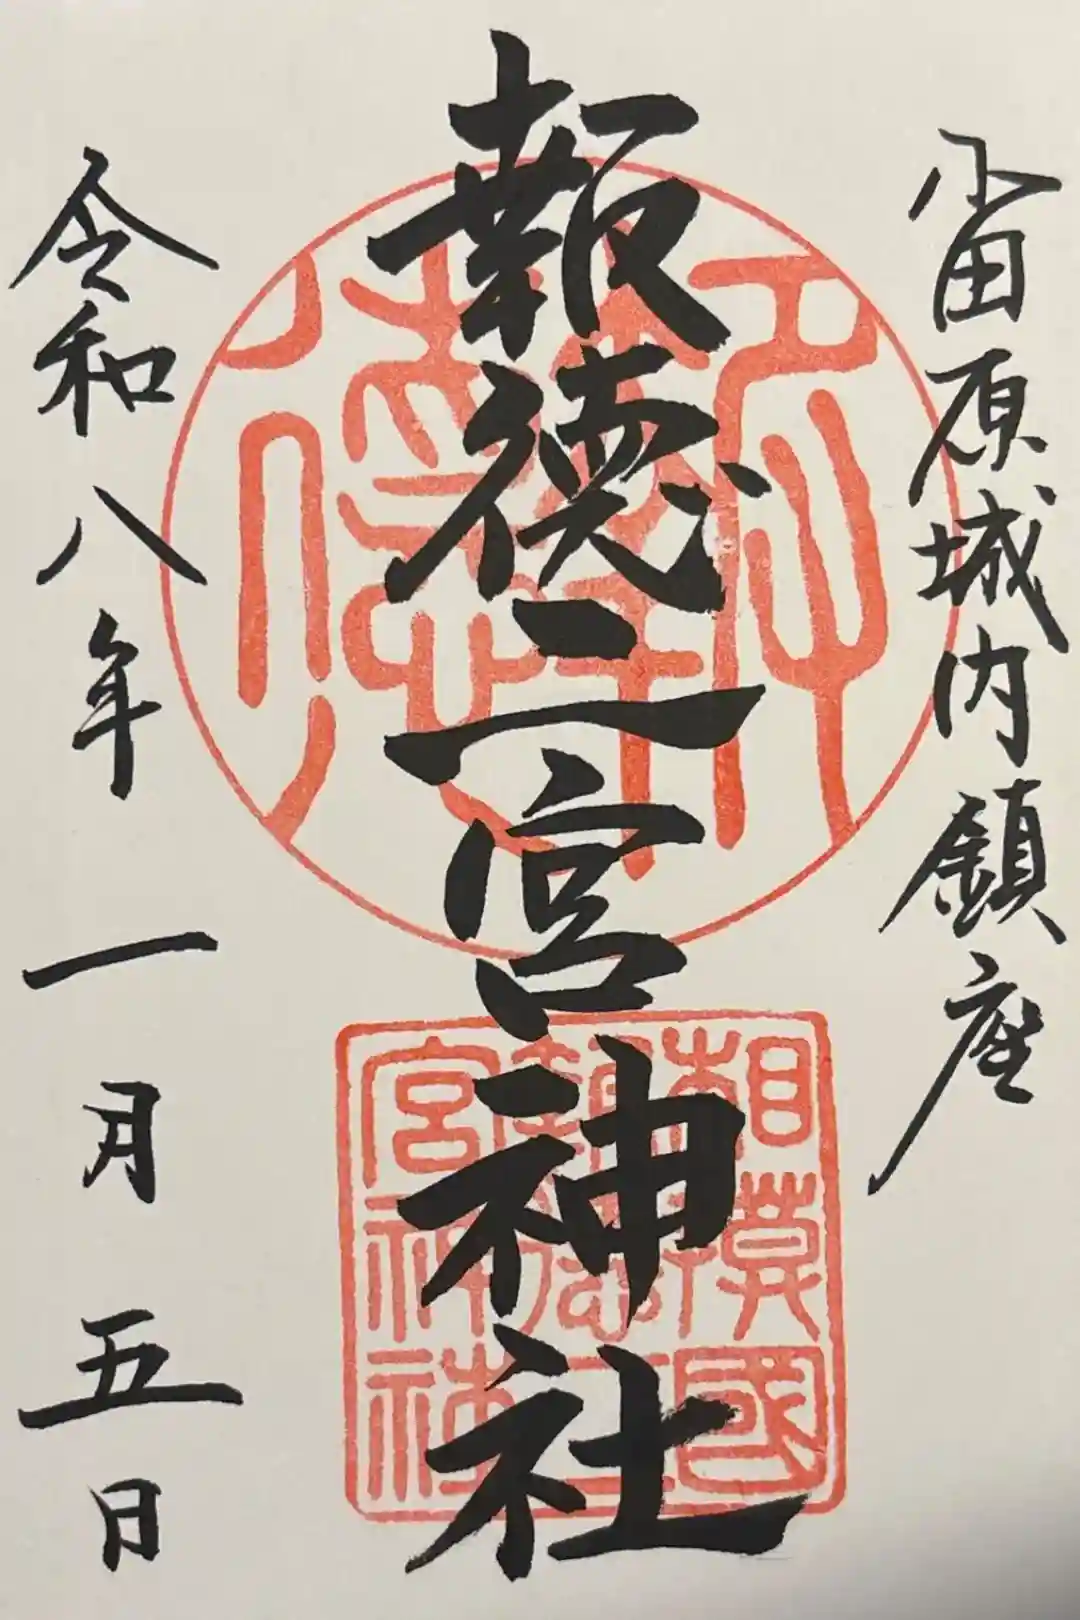 小田原城内鎮座
報徳二宮神社
令和八年 一月 五日
報徳
相模國
報徳二
宮神社